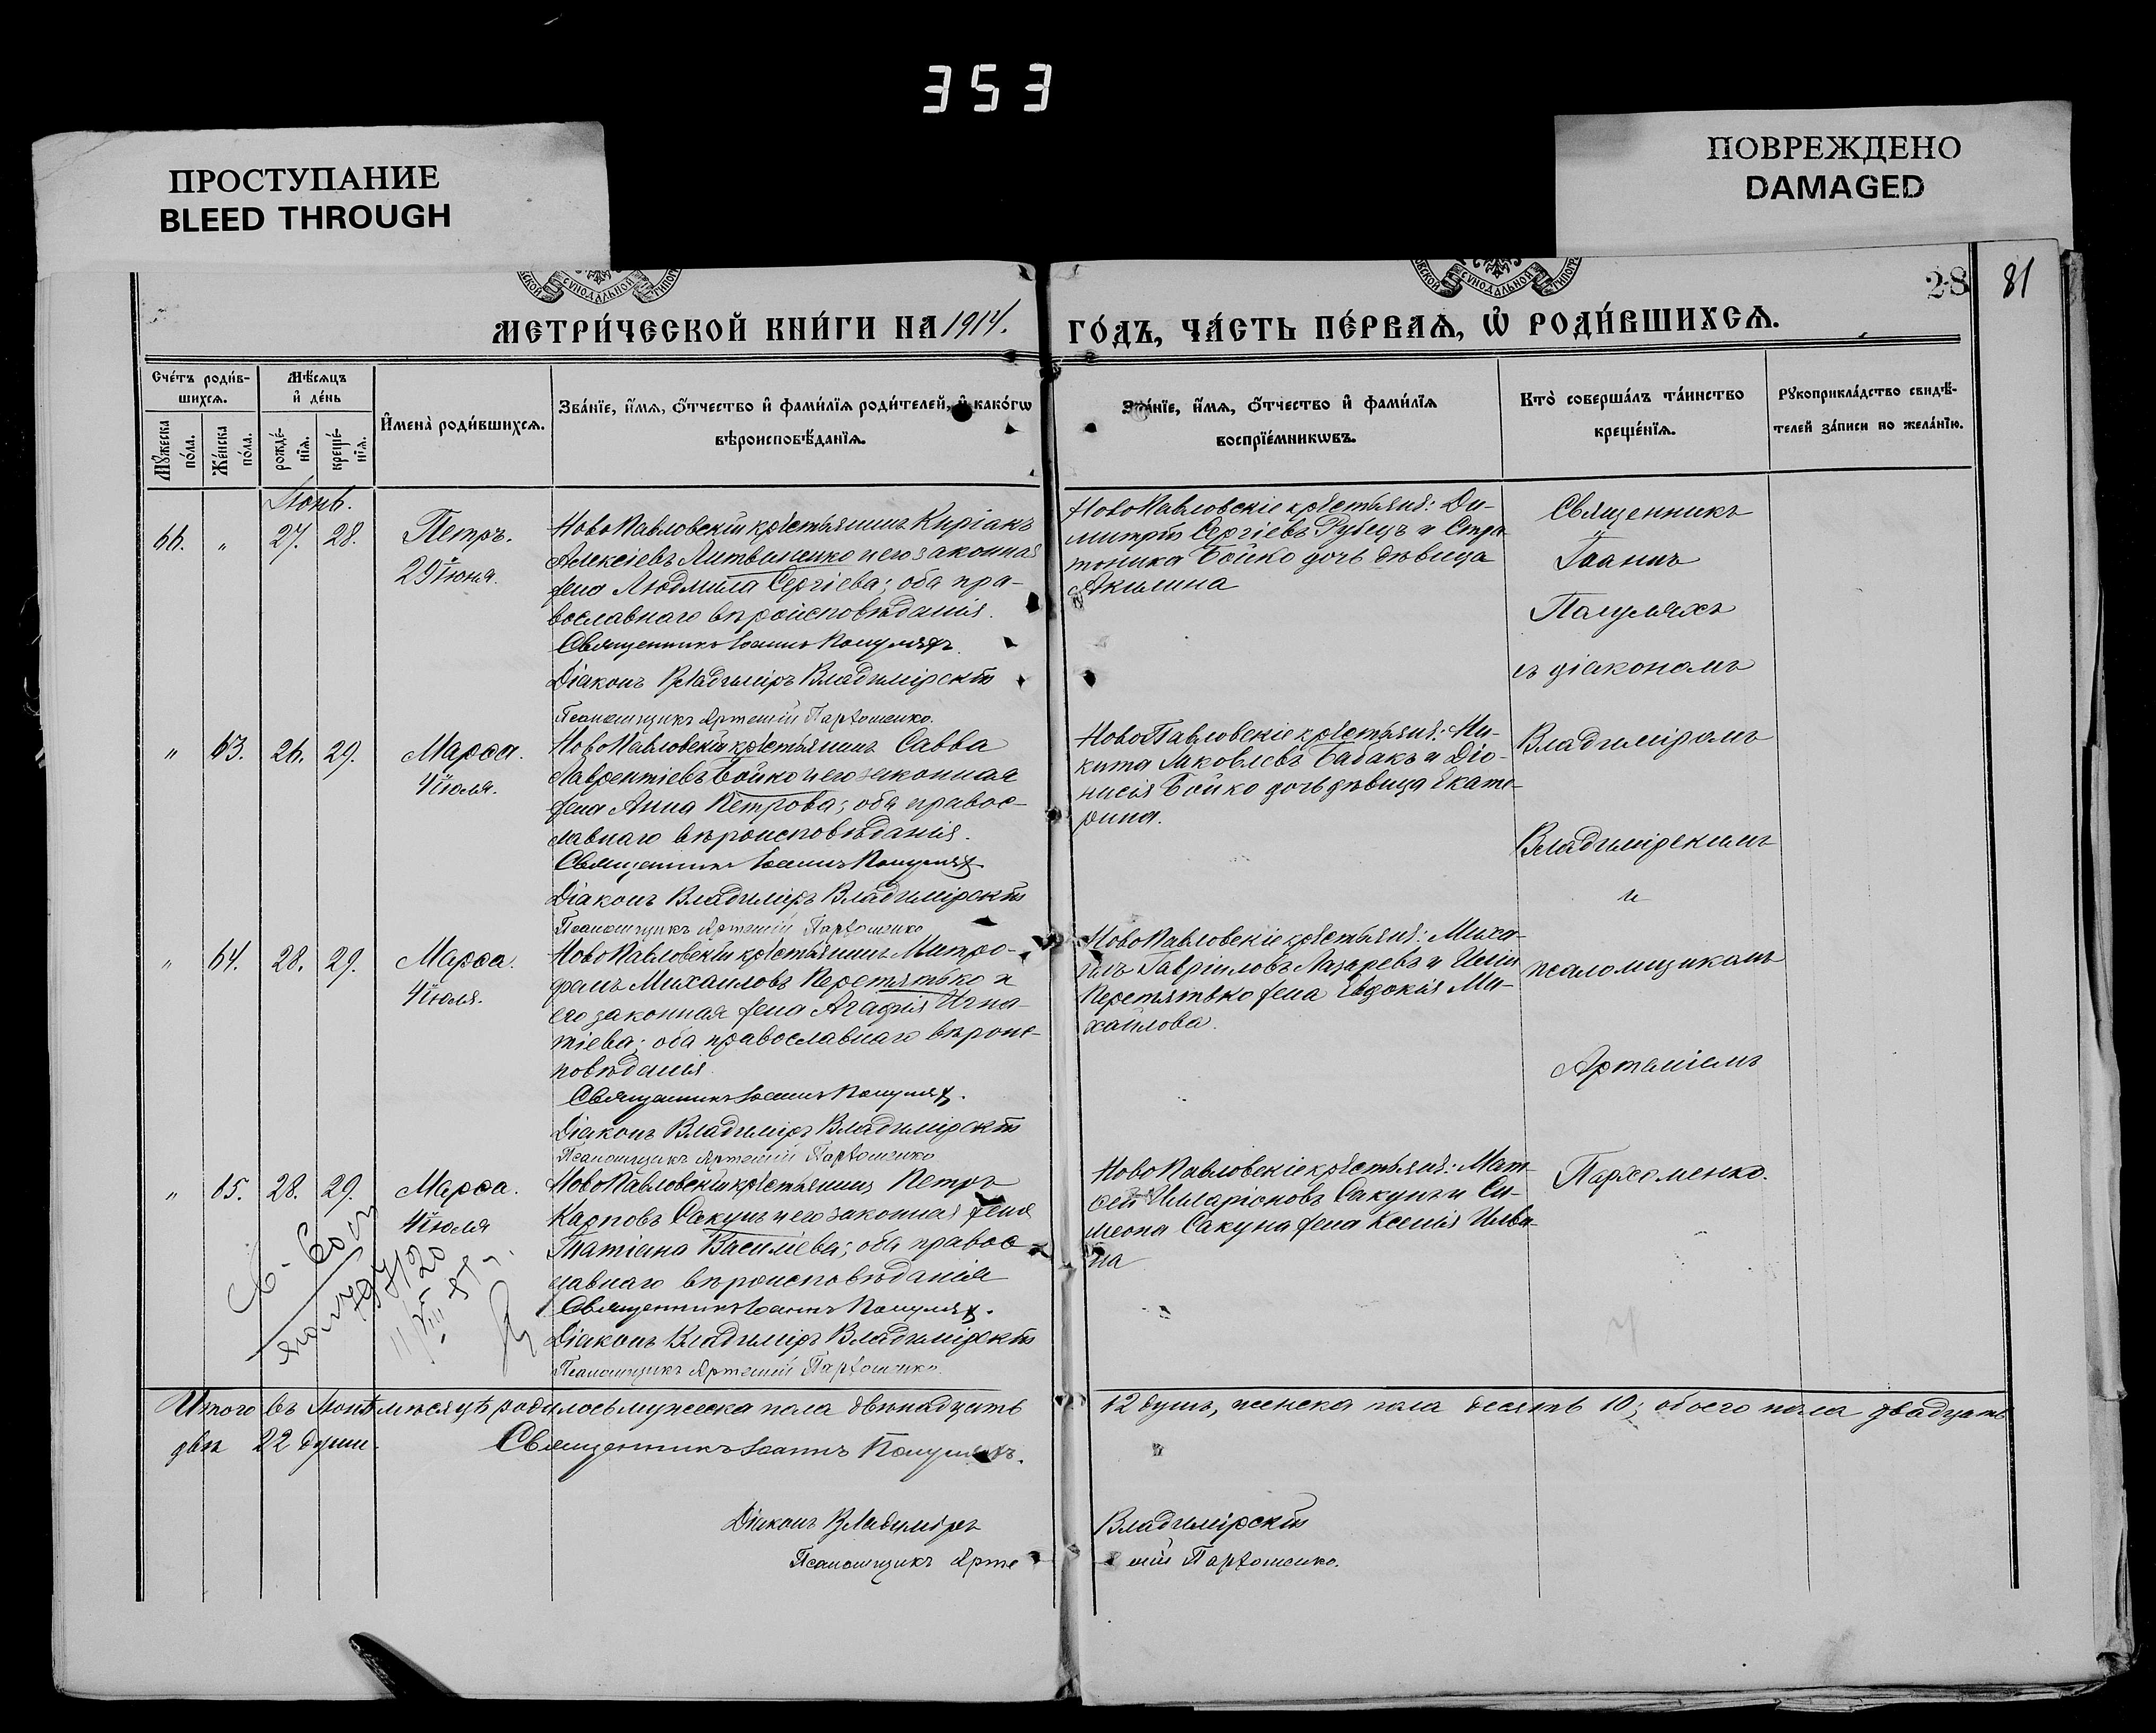 353
ПРОСТУПАНИЕ
BLEED THROUGH
ПОВРЕЖДЕНО
DAMAGED
СѴНОДАЛЬНОЙ
СѴНОДАЛЬНОЙ
28
81
МЕТРИ́ЧЕСКОЙ КНИ́ГИ НА 1914.
ГО́ДЪ, ЧА́СТЬ ПЕ́РВАѦ, Ѡ҆ РОДИ́ВШИХСѦ.
Сче́тъ роди́в-
шихсѧ.
Мѣ́сѧцъ
и҆ де́нь
Мꙋ́жеска
по́ла.
Же́нска
по́ла.
рожде́-
нїѧ.
креще́-
нїѧ.
И҆мена̀ роди́вшихсѧ.
Зва́нїе, и҆́мѧ, ѻ҆́тчество и҆ фами́лїѧ роди́телей, и҆ како́гѡ
вѣроисповѣ́данїѧ.
Зва́нїе, и҆́мѧ, ѻ҆́тчество и҆ фами́лїѧ
воспрїе́мникѡвъ.
Кто̀ соверша́лъ та́инство
креще́нїѧ.
Рꙋкоприкла́дство свидѣ́-
телей за́писи по жела́нїю.
Іюнь.
66. " 27. 28. Петръ.
29 Іюня.
НовоПавловскій крестьянинъ Киріакъ
Алексіевъ Литвиненко и его законная
жена Людмила Сергіева; оба пра-
вославнаго вѣроисповѣданія.
Священникъ Іоаннъ Полулях
Діаконъ Владиміръ Владимірскій
Псаломщикъ Артемій Пархоменко.
НовоПавловскіе крестьяне: Ди-
митрій Сергіевъ Рубецъ и Стра-
тоника Бойко дочь дѣвица
Акилина
" 63. 26. 29. Марѳа.
4 Іюля.
НовоПавловскій крестьянинъ Савва
Лаврентіевъ Бойко и его законная
жена Анна Петрова; оба правос-
лавнаго вѣроисповѣданія.
Священникъ Іоаннъ Полулях
Діаконъ Владиміръ Владимірскій
Псаломщикъ Артемій Пархоменко
НовоПавловскіе крестьяне: Ни-
кита Яковлевъ Бабакъ и Діо-
нисія Бойко дочь дѣвица Екате-
рина.
" 64. 28. 29. Марѳа.
4 Іюля.
НовоПавловскій крестьянинъ Митро-
фанъ Михаиловъ Перетятько и
его законная жена Агафія Игна-
тіева; оба православнаго вѣроис-
повѣданія
Священникъ Іоаннъ Полулях.
Діаконъ Владиміръ Владимірскій
Псаломщикъ Артемій Пархоменко
НовоПавловскіе крестьяне: Миха-
илъ Гавріиловъ Лазаревъ и
Перетятько жена Евдокія Ми-
хайлова.
" 65. 28. 29. Марѳа.
4 Іюля
НовоПавловскій крестьянинъ Петръ
Карповъ Сакунъ и его законная жена
Татіана Василіева; оба правос-
лавнаго вѣроисповѣданія
Священникъ Іоаннъ Полулях.
Діаконъ Владиміръ Владимірскій
Псаломщикъ Артемій Пархоменко.
НовоПавловскіе крестьяне: Мат-
ѳей Илларіоновъ Сакунъ и Си-
меона Сакуна жена Ксенія Ильи-
на
Священникъ
Іоаннъ
Полуляхъ
съ діакономъ
Владиміромъ
Владимірскимъ
и
псаломщикомъ
Артеміемъ
Пархоменко.
Итого въ Іюнѣ мѣсяцѣ родилось мужеска пола двѣнадцать 12 душъ, женска пола десять 10; обоего пола двадцать
двѣ 22 души.
Священникъ Іоаннъ Полуляхъ.
Діаконъ Владиміръ Владимірскій
Псаломщикъ Артемій Пархоменко.